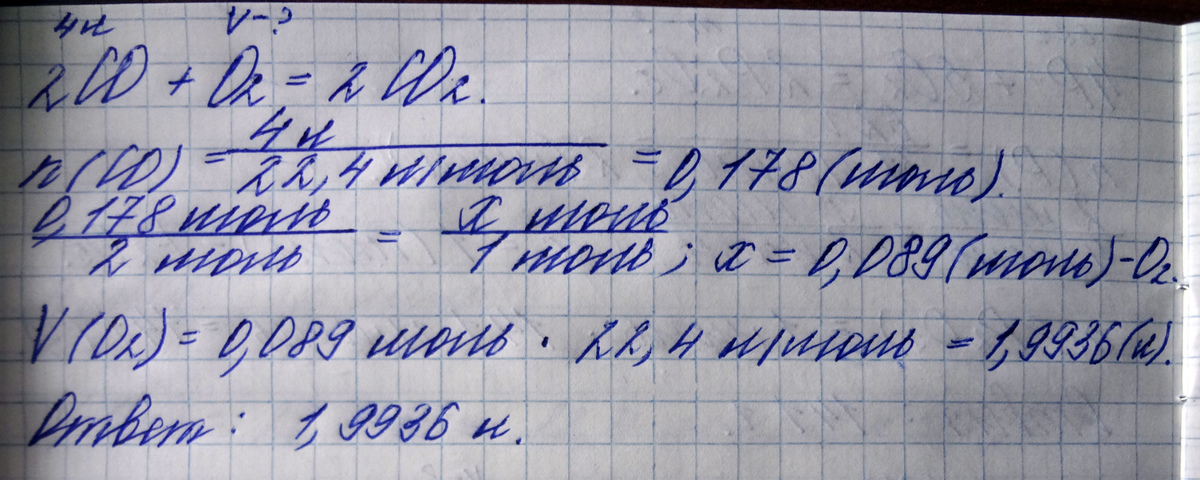 4л V-?
2CO + O₂ = 2CO₂.
n(CO) = 4л / 22,4 л/моль = 0,178 (моль).
0,178 моль / 2 моль = x моль / 1 моль ; x = 0,089 (моль) - O₂.
V(O₂) = 0,089 моль · 22,4 л/моль = 1,9936 (л).
Ответ: 1,9936 л.